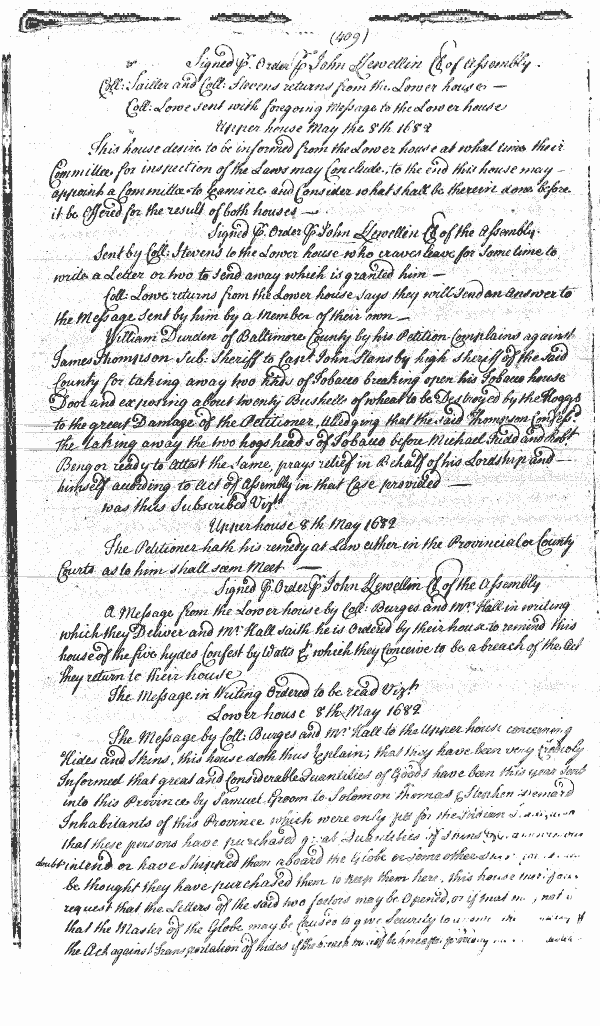 (409)
Signed p. Order p John Llewellin Cl of Assembly.
Coll: Tailler and Coll: Stevens returns from the Lower house —
Coll: Lowe sent with foregoing Message to the Lower house
Upper house May the 8th 1682
This house desire to be informed from the Lower house at what time their
Committee for inspection of the Laws may Conclude, to the end this house may
appoint a Committee to Examine and Consider what shall be therein done before
it be Offered for the result of both houses —
Signed p. Order p John Llewellin Cl of the Assembly.
Sent by Coll: Stevens to the Lower house who craves leave for some time to
write a Letter or two to send away which is granted him —
Coll: Lowe returns from the Lower house says they will send an answer to
the Message sent by him by a Member of their own —
William Durden of Baltimore County by his Petition Complains against
James Thompson Sub: Sheriff to Capt John Stansby high sheriff of the said
County for taking away two hhds of Tobacco breaking open his Tobacco house
Door and exposing about twenty Bushells of wheat to be Destroyed by the Hoggs
to the great Damage of the Petitioner, alledging that the said Thompson Confess:
the taking away the two hogsheads of Tobacco before Michael Judd and Robt
Benger ready to attest the same, prays relief in behalf of his Lordship and
himself according to Act of Assembly in that Case provided —
was thus Subscribed Vizt
Upper house 8th May 1682
The Petitioner hath his remedy at Law either in the Provincial or County
Courts as to him shall seem Meet —
Signed p. Order p John Llewellin Cl of the Assembly
A Message from the Lower house by Coll: Burges and Mr Hall in writing
which they Deliver and Mr Hall saith he is Ordered by their house to remind this
house of the five hydes Confest by Watts & which they Conceive to be a breach of the Act
they return to their house
The Message in Writing Ordered to be read Vizt
Lower house 8th May 1682
The Message by Coll: Burges and Mr Hall to the Upper house concerning
Hides and Skins, this house doth thus Explain; that they have been very Credibly
Informed that great and Considerable Quantities of Goods have been this year Sent
into this Province by Samuel Groom to Solomon Thomas & Stephen
Inhabitants of this Province which were only for the Indian
that these persons have purchased great Quantities of Skins
doubt intend or have Shipped them aboard the Globe or some other
be thought they have purchased them to keep them here, this house
request that the Letters of the said two factors may be Opened, or if
that the Master of the Globe may be Caused to give Security to
the Act against Transportation of hides if the breach